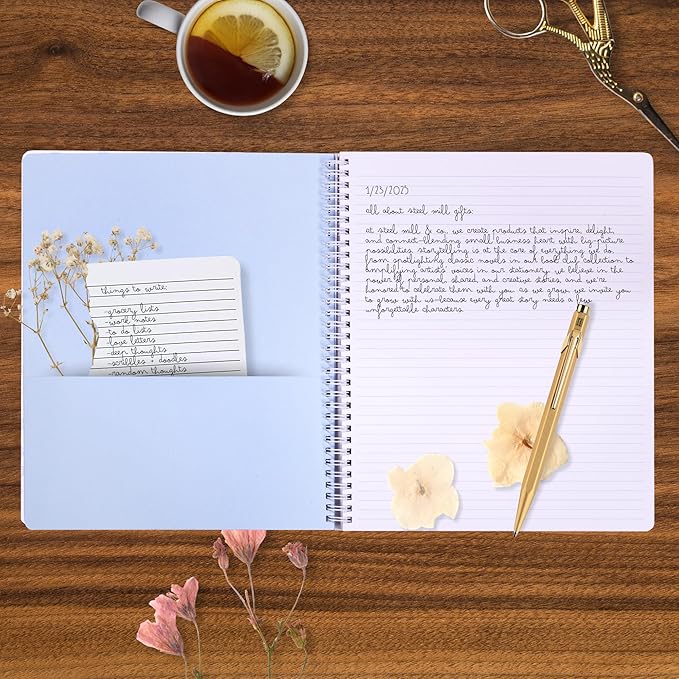 things to write:
-grocery lists
-work notes
-to do lists
-love letters
-deep thoughts
-scribbles + doodles
-random thoughts
1/23/2025
all about steel mill gifts:
at steel mill & co, we create products that inspire, delight,
and connect-blending small business heart with big-picture
possibilities. storytelling is at the core of everything we do.
from spotlighting classic novels in our book club collection to
amplifying artists' voices in our stationery, we believe in the
power of personal, shared, and creative stories, and we're
honored to celebrate them with you. as we grow, we invite you
to grow with us-because every great story needs a few
unforgettable characters.